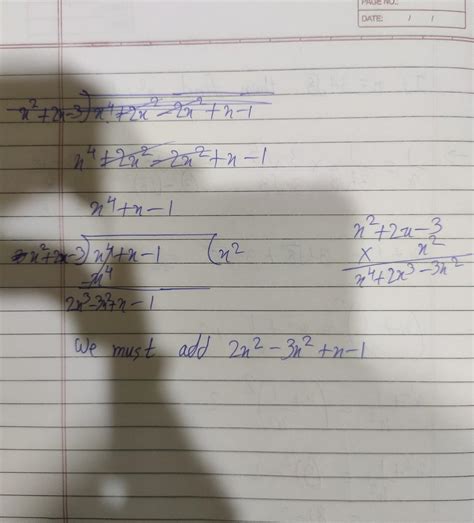 PAGE NO.:
DATE: / /
x²+2x-3)x⁴+2x²-2x²+x-1
x⁴+2x²-2x²+x-1
x⁴+x-1
x²+2x-3)x⁴+x-1(x²
-x⁴
2x³-3x²+x-1
x²+2x-3
× x²
x⁴+2x³-3x²
We must add 2x²-3x²+x-1